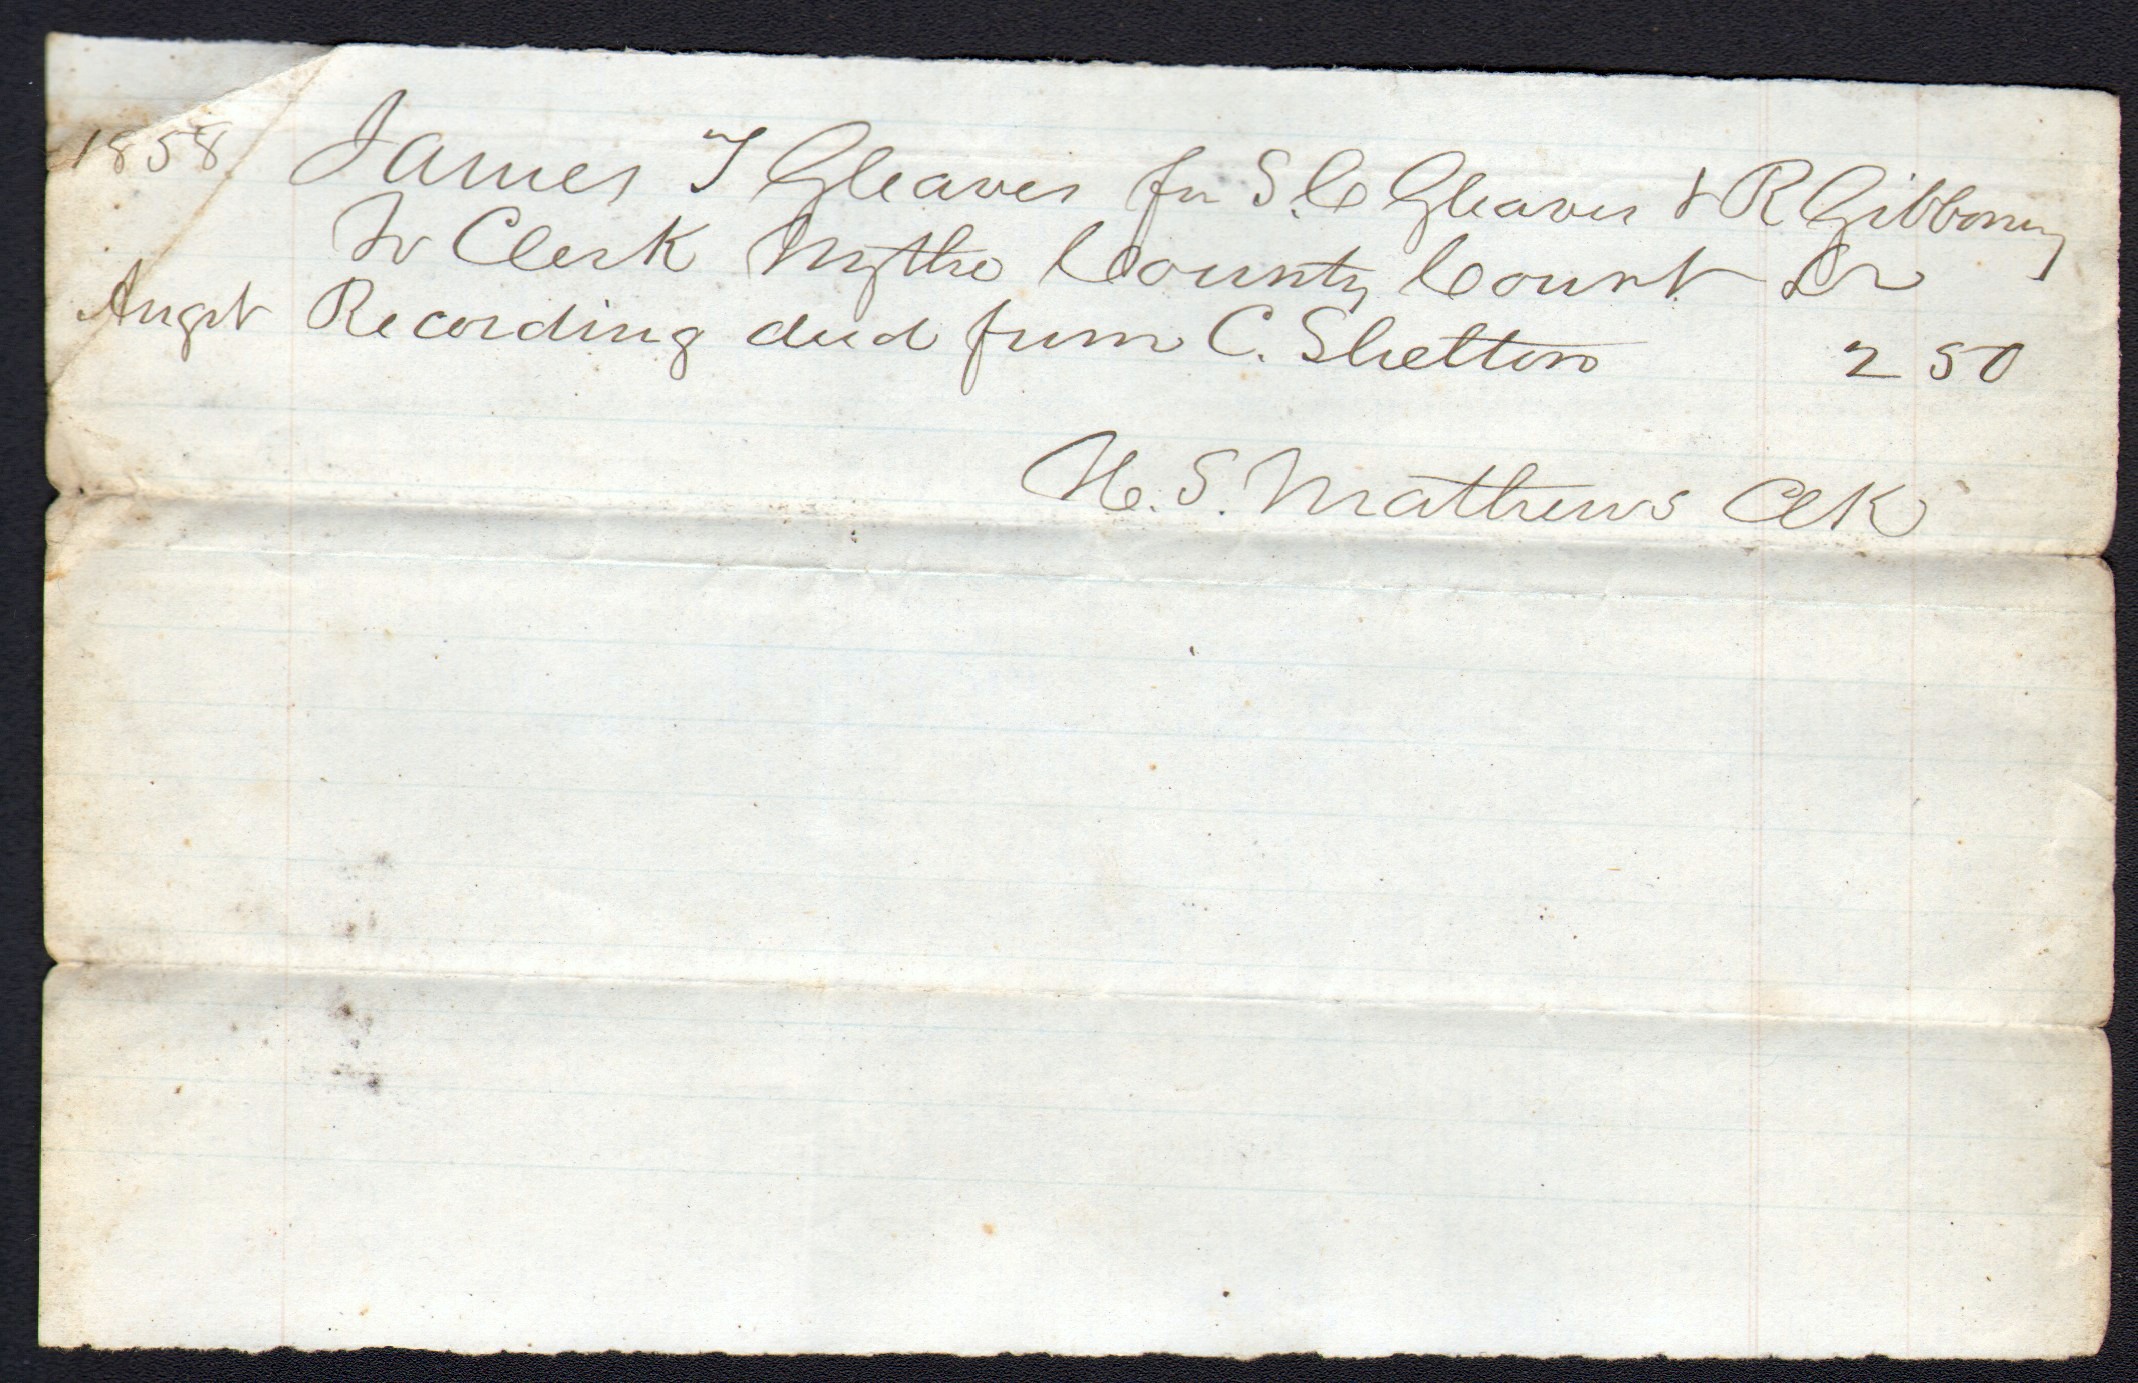 1858 James T Gleaves for S. C Gleaves & R Gibboney
To Clerk Wythe County Court Dr
Augst Recording deed from C. Shelton 2 50
S. Mathews Clk